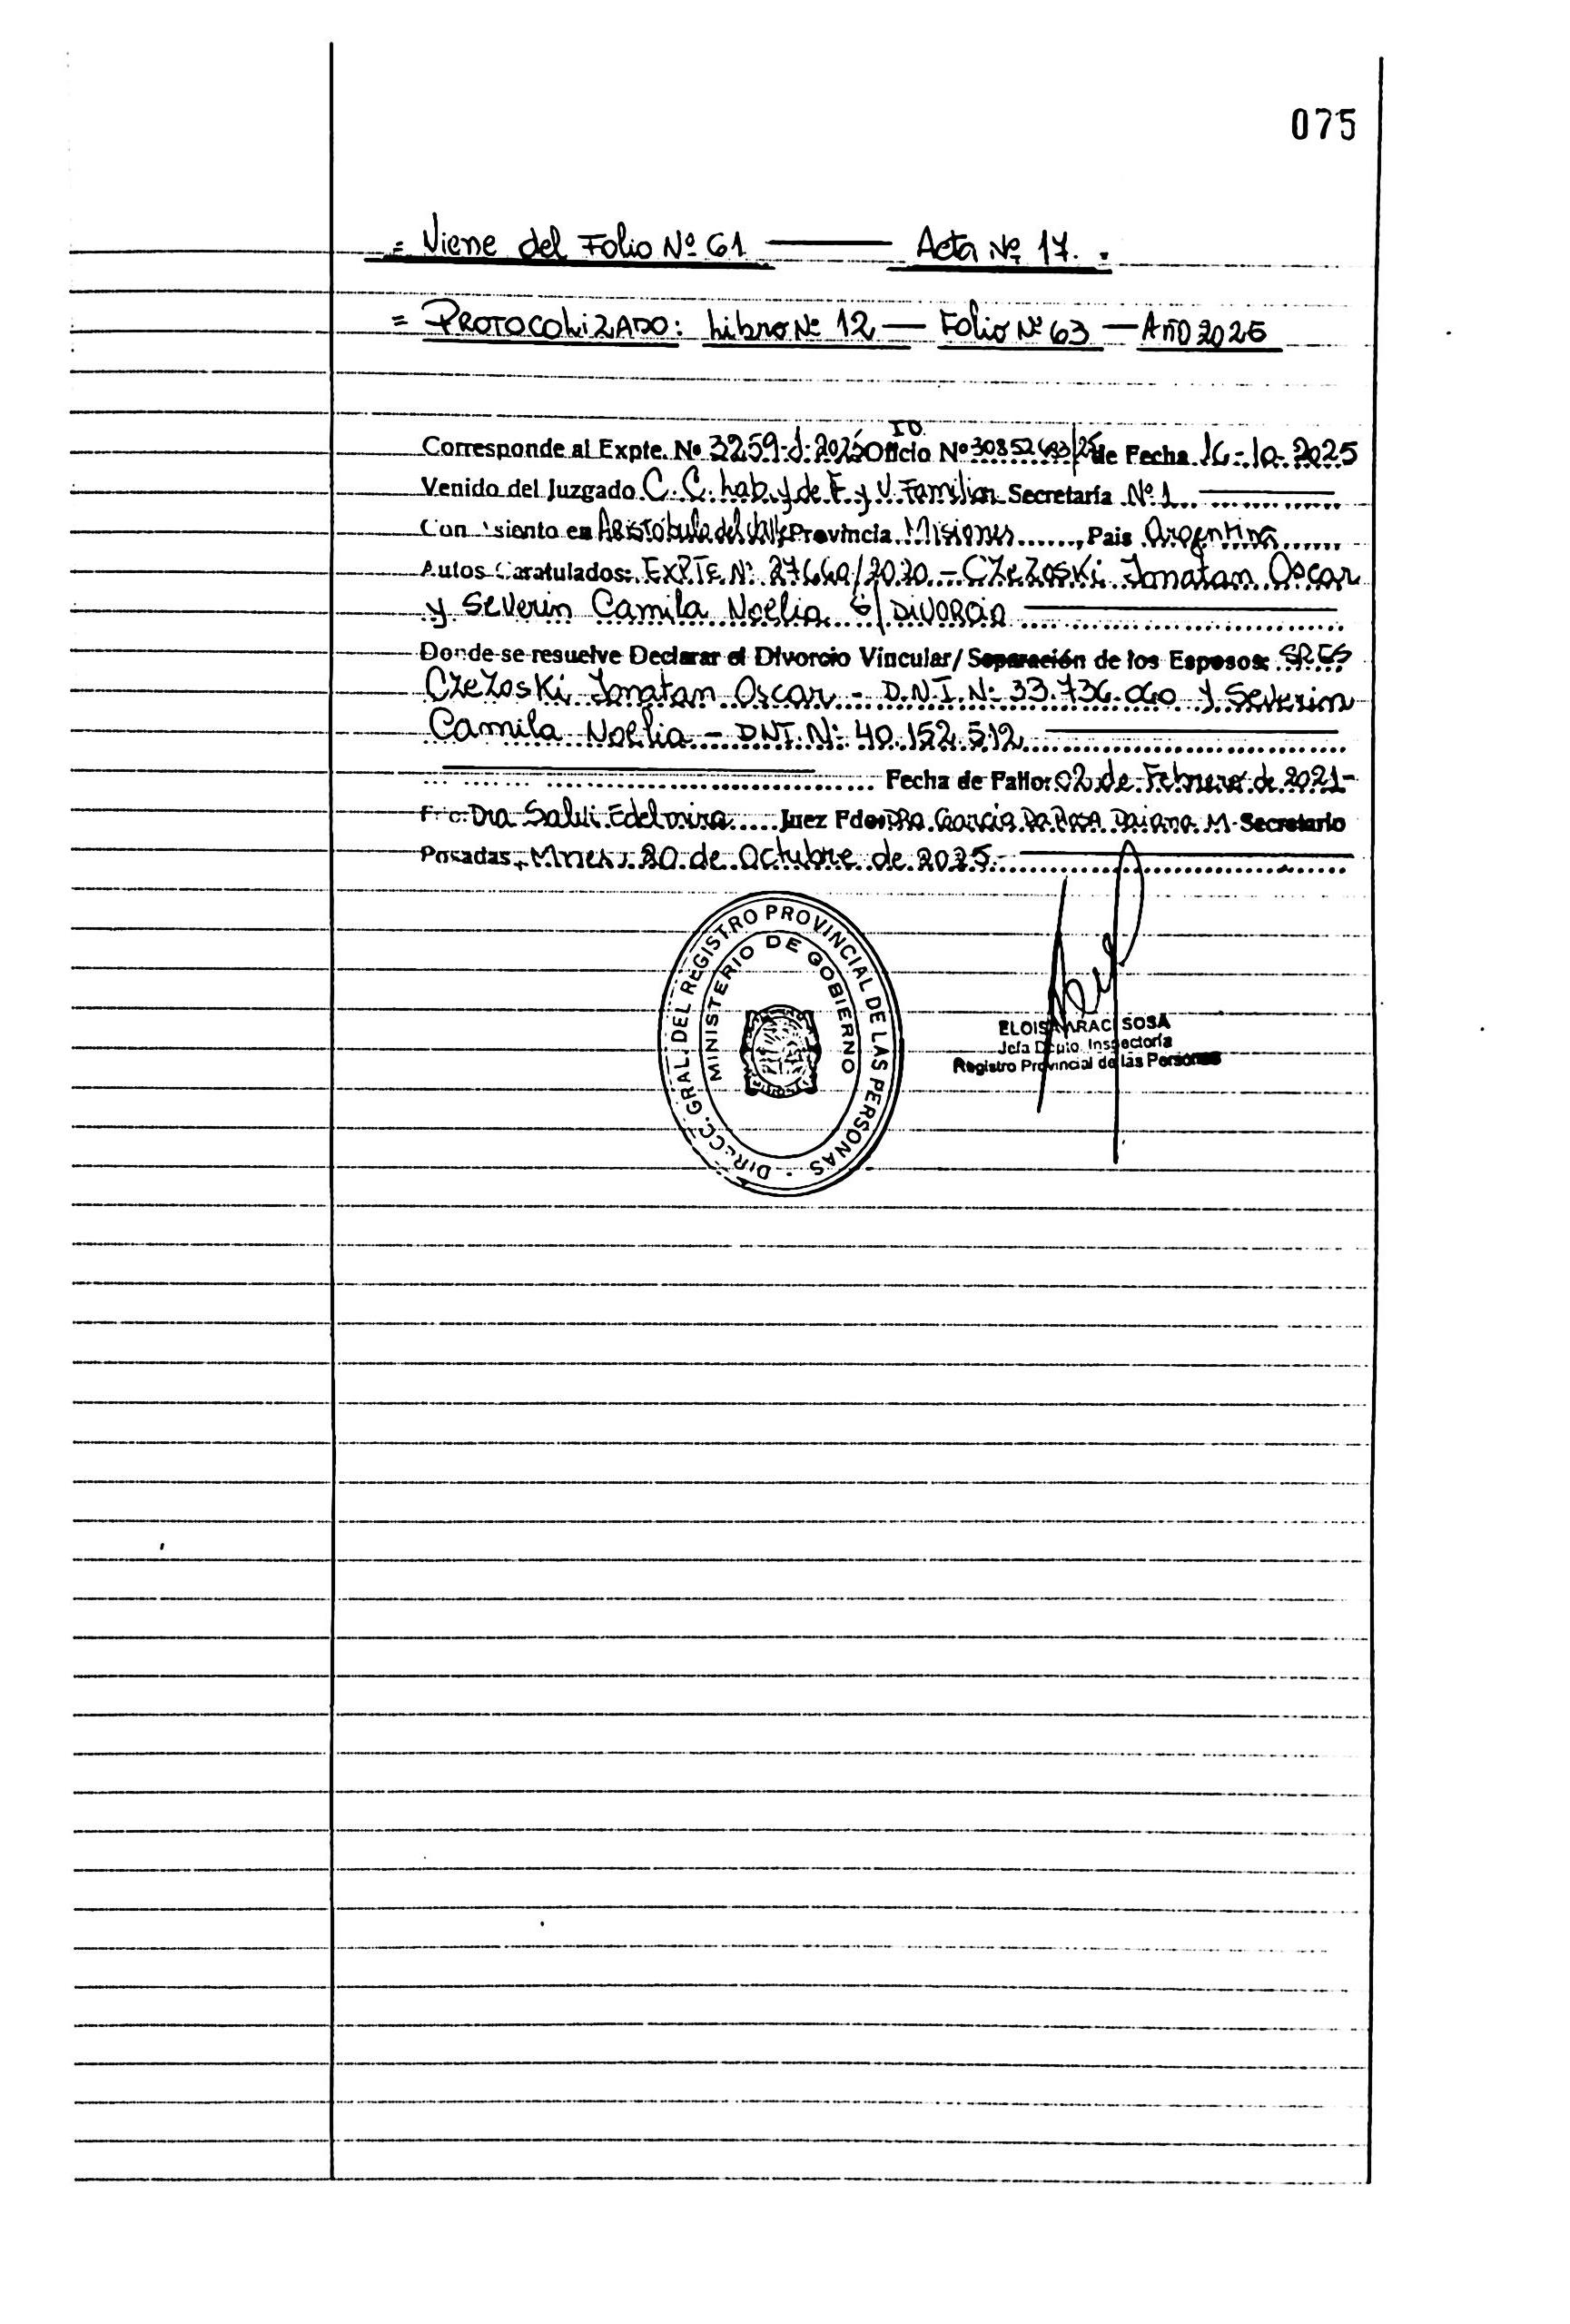 075
= Viene del Folio Nº 61 — Acta Nº 17.
= PROTOCOLIZADO: Libro Nº 12 — Folio Nº 63 — AÑO 2025
ID.
Corresponde al Expte. Nº 3259-J-2025 Oficio Nº 30852693/25 de Fecha 16-10-2025
Venido del Juzgado C. C. Lab. y de F. y V. Familiar Secretaría Nº 1
Con asiento en Aristóbulo del Valle Provincia Misiones, Pais Argentina
Autos Caratulados: EXPTE Nº 27660/2020 - CZEZOSKI Jonatan Oscar
y Severin Camila Noelia S/ DIVORCIO
Donde se resuelve Declarar el Divorcio Vincular/Separación de los Esposos: SRES
CZEZOSKI Jonatan Oscar - D.N.I. Nº 33.736.060 y Severin
Camila Noelia - DNI. Nº 40.152.512
Fecha de Fallo: 02 de Febrero de 2021-
Fdo: Dra Edelmira Juez Fdo: DRA García Da Rosa Daiana M. Secretario
Posadas, Mnes, 20 de Octubre de 2025.-
DIRECC. GRAL. DEL REGISTRO PROVINCIAL DE LAS PERSONAS -
MINISTERIO DE GOBIERNO
ELOISA ARACI SOSA
Jefa Dpto. Inspectoría
Registro Provincial de las Personas